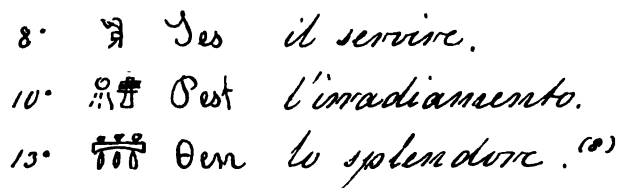 8° Ses il servire.
10° Pest l'irradiamento.
13° θen lo splendore. (8)